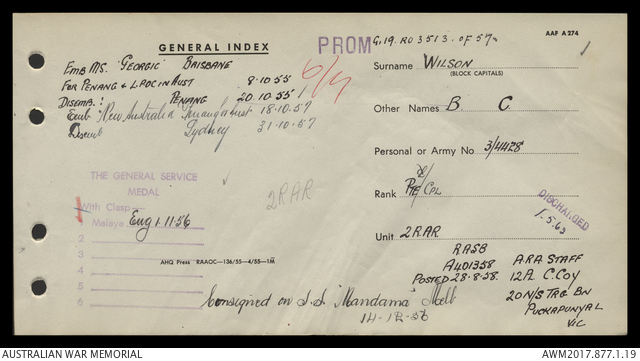 GENERAL INDEX
PROM
G.19. RO 3513. OF 57.
AAF A 274
1
EMB MS. 'GEORGIC' BRISBANE
FOR PENANG & L.POC IN AUST 8.10.55
DISEMB: PENANG 20.10.55
Emb: New Australia 18.10.57
Disemb Sydney 31.10.57
Surname WILSON
(BLOCK CAPITALS)
Other Names B. C
Personal or Army No 3/4428
Rank PTE/CPL
Unit 2RAR
THE GENERAL SERVICE
MEDAL
1 With Clasp—
Malaya Eng 1.11.56
2
3
4
5
6
2RAR
AHQ Press RAAOC—136/55—4/55—1M
DISCHARGED
1.5.63
RASB
A401358
POSTED 28-8-58.
A.R.A. STAFF
12A C.COY
20 N/S TRG BN
PUCKAPUNYAL
VIC
Consigned on S.S. 'Mandama' Melb
14-12-56
AUSTRALIAN WAR MEMORIAL
AWM2017.877.1.19